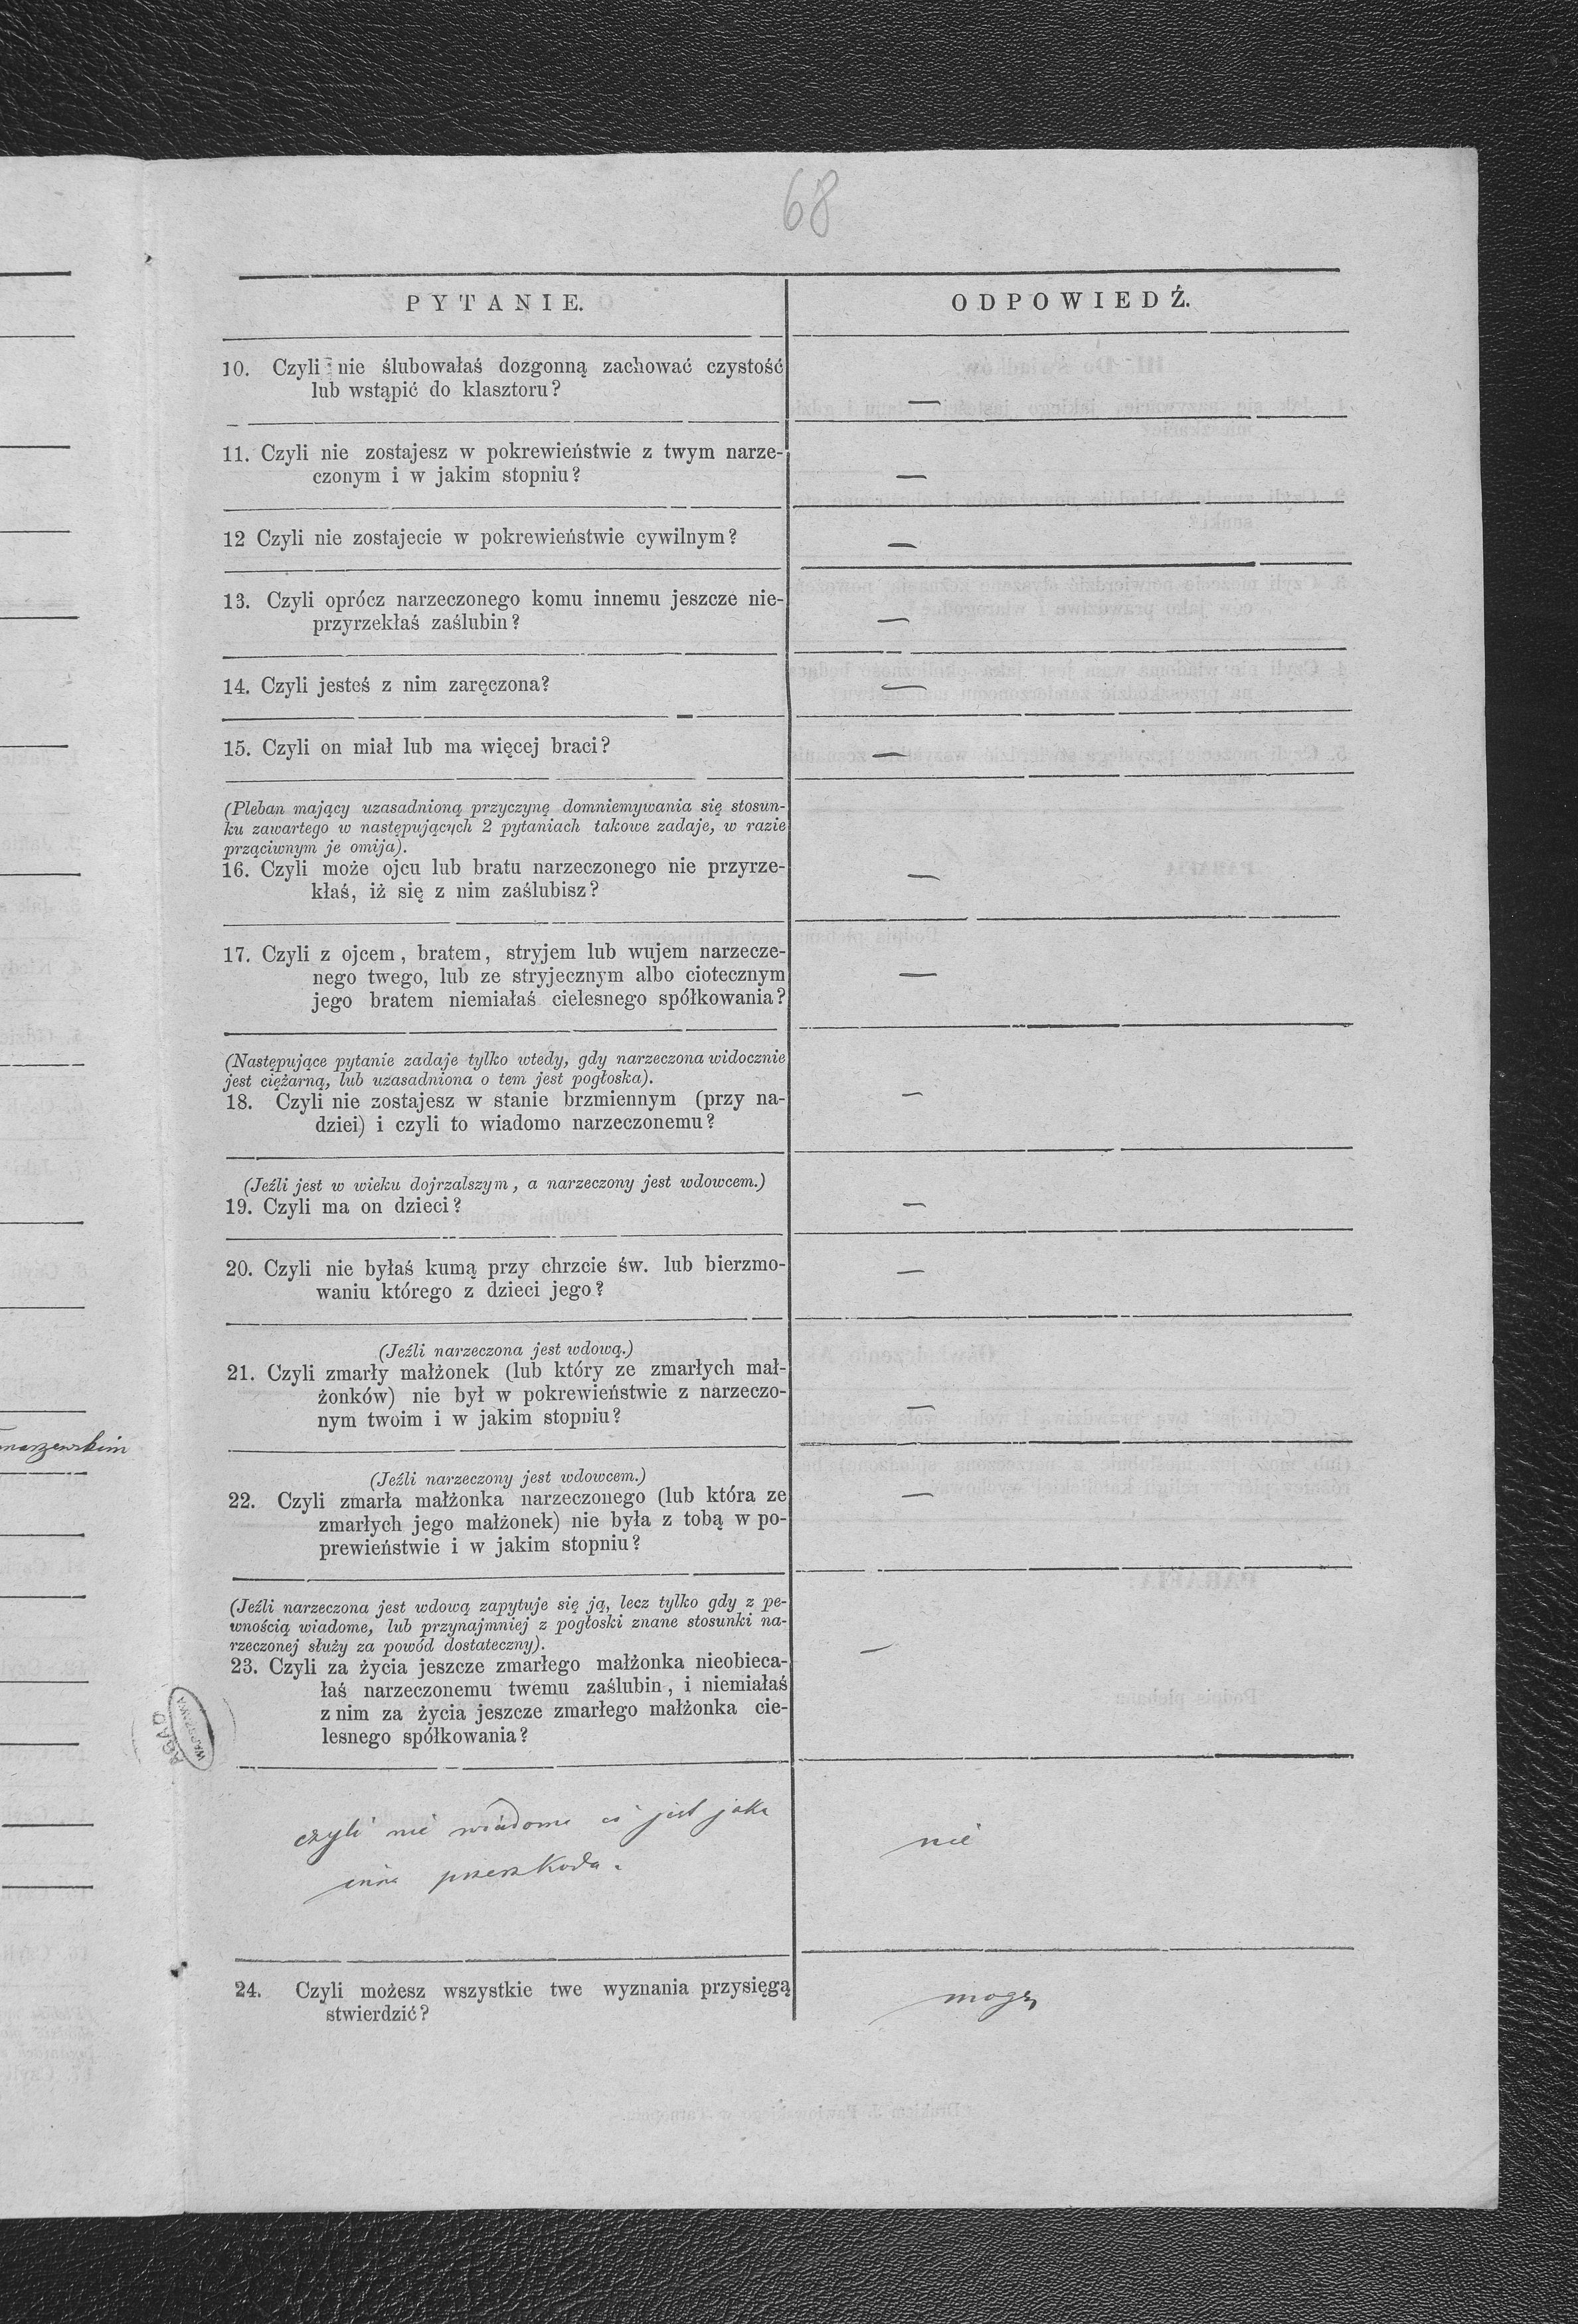 68
PYTANIE.
ODPOWIEDŹ.
10. Czyli nie ślubowałaś dozgonną zachować czystość
lub wstąpić do klasztoru?
—
11. Czyli nie zostajesz w pokrewieństwie z twym narze-
czonym i w jakim stopniu?
—
12 Czyli nie zostajecie w pokrewieństwie cywilnym?
—
13. Czyli oprócz narzeczonego komu innemu jeszcze nie-
przyrzekłaś zaślubin?
—
14. Czyli jesteś z nim zaręczona?
—
15. Czyli on miał lub ma więcej braci?
—
(Pleban mający uzasadnioną przyczynę domniemywania się stosun-
ku zawartego w następujących 2 pytaniach takowe zadaje, w razie
prząciwnym je omija).
16. Czyli może ojcu lub bratu narzeczonego nie przyrze-
kłaś, iż się z nim zaślubisz?
—
17. Czyli z ojcem, bratem, stryjem lub wujem narzecze-
nego twego, lub ze stryjecznym albo ciotecznym
jego bratem niemiałaś cielesnego spółkowania?
—
(Następujące pytanie zadaje tylko wtedy, gdy narzeczona widocznie
jest ciężarną, lub uzasadniona o tem jest pogłoska).
18. Czyli nie zostajesz w stanie brzmiennym (przy na-
dziei) i czyli to wiadomo narzeczonemu?
—
(Jeźli jest w wieku dojrzalszym, a narzeczony jest wdowcem.)
19. Czyli ma on dzieci?
—
20. Czyli nie byłaś kumą przy chrzcie św. lub bierzmo-
waniu którego z dzieci jego?
—
(Jeźli narzeczona jest wdową.)
21. Czyli zmarły małżonek (lub który ze zmarłych mał-
żonków) nie był w pokrewieństwie z narzeczo-
nym twoim i w jakim stopniu?
—
(Jeźli narzeczony jest wdowcem.)
22. Czyli zmarła małżonka narzeczonego (lub która ze
zmarłych jego małżonek) nie była z tobą w po-
prewieństwie i w jakim stopniu?
—
(Jeźli narzeczona jest wdową zapytuje się ją, lecz tylko gdy z pe-
wnością wiadome, lub przynajmniej z pogłoski znane stosunki na-
rzeczonej służy za powód dostateczny).
23. Czyli za życia jeszcze zmarłego małżonka nieobieca-
łaś narzeczonemu twemu zaślubin, i niemiałaś
z nim za życia jeszcze zmarłego małżonka cie-
lesnego spółkowania?
—
AGAD
WARSZAWA
czyli nie wiadome ci jest jaka
inna przeszkoda.
nie
24. Czyli możesz wszystkie twe wyznania przysięgą
stwierdzić?
mogę